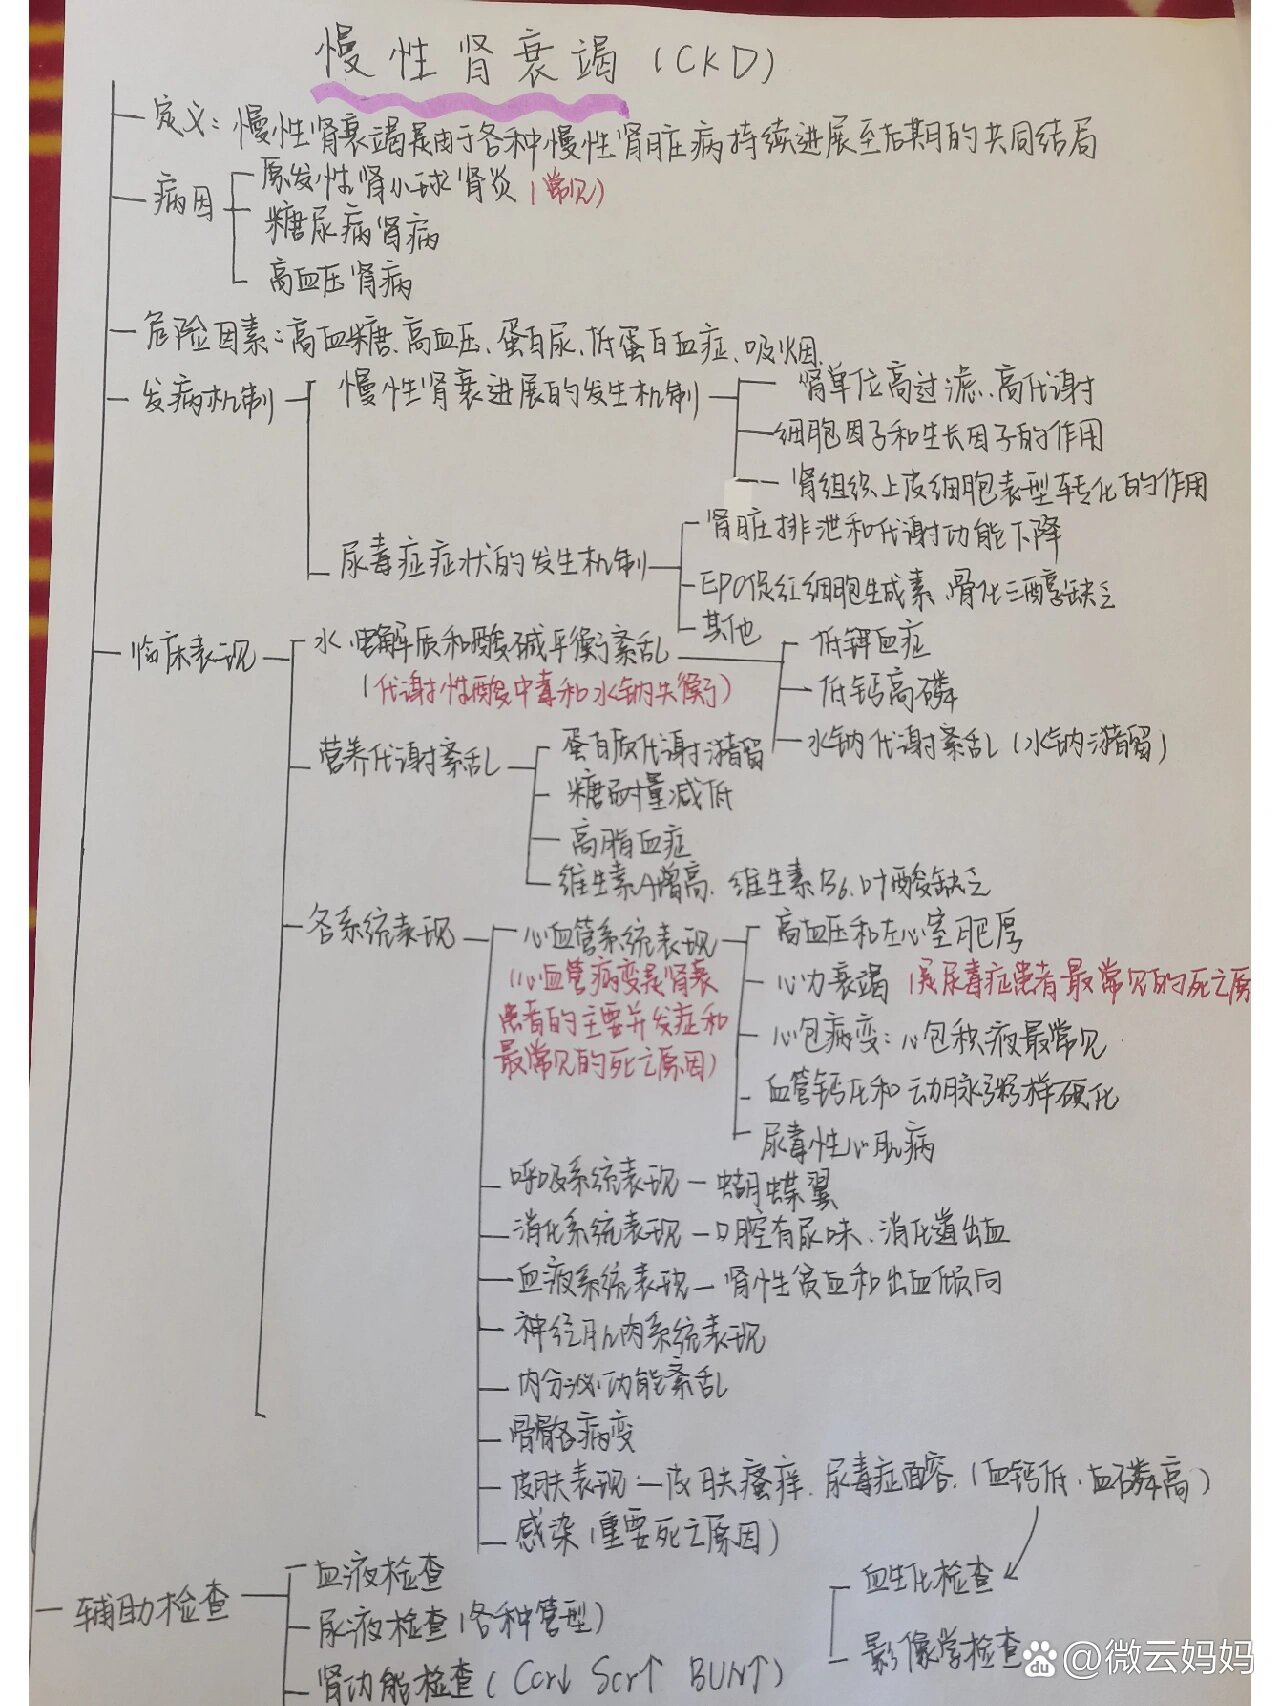 慢性肾衰竭（CKD）
定义：慢性肾衰竭是由于各种慢性肾脏病持续进展至后期的共同结局
病因
原发性肾小球肾炎（常见）
糖尿病肾病
高血压肾病
危险因素：高血糖、高血压、蛋白尿、低蛋白血症、吸烟
发病机制
慢性肾衰进展的发生机制
肾单位高过滤、高代谢
细胞因子和生长因子的作用
肾组织上皮细胞表型转化的作用
尿毒症症状的发生机制
肾脏排泄和代谢功能下降
EPO促红细胞生成素、骨化三醇缺乏
其他
临床表现
水、电解质和酸碱平衡紊乱
（代谢性酸中毒和水钠失衡）
低钾血症
低钙高磷
水钠代谢紊乱（水钠潴留）
营养代谢紊乱
蛋白质代谢潴留
糖耐量减低
高脂血症
维生素A增高、维生素B6、叶酸缺乏
各系统表现
心血管系统表现
（心血管病变是肾衰
患者的主要并发症和
最常见的死亡原因）
高血压和左心室肥厚
心力衰竭（是尿毒症患者最常见的死亡原
心包病变：心包积液最常见
血管钙化和动脉粥样硬化
尿毒性心肌病
呼吸系统表现－蝴蝶翼
消化系统表现－口腔有尿味、消化道出血
血液系统表现－肾性贫血和出血倾向
神经肌肉系统表现
内分泌功能紊乱
骨骼病变
皮肤表现－皮肤瘙痒、尿毒症面容、（血钙低、血磷高）
感染（重要死亡原因）
辅助检查
血液检查
尿液检查（各种管型）
肾功能检查（Ccr↓ Scr↑ BUN↑）
血生化检查
影像学检查
Bai du @微云妈妈